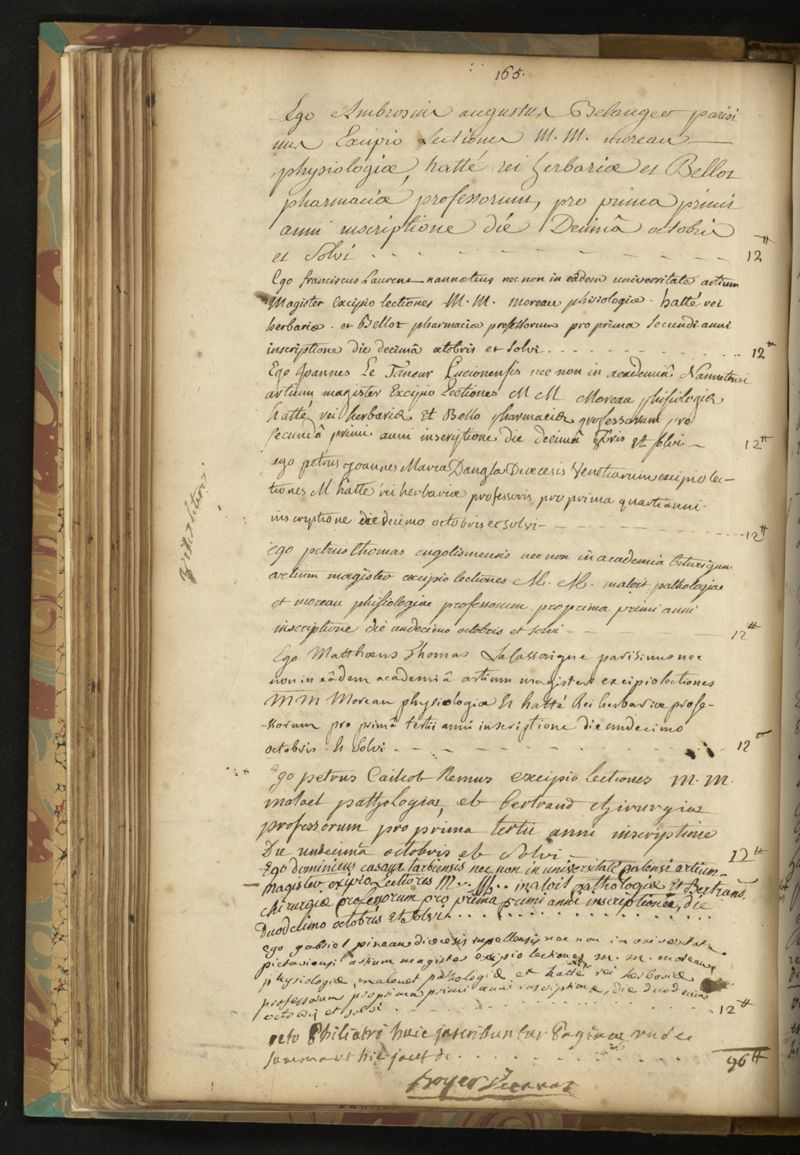 165.
Ego Ambrosius augustus Belanger parisi
nus Excipio Lectiones M. M. moreau
physiologiæ, hatté rei herbariæ et Bellot
pharmaciæ professorum, pro prima primi
anni inscriptione die Decimâ octobris
et Solvi 12 ₶
Ego franciscus Laurens nanneteus nec non in eâdem universitate artium
Magister excipio lectiones M. M. moreau phisiologiæ. hatté rei
herbariæ. et Bellot pharmaciæ professorum pro prima secundi anni
inscriptione die decimâ octobris et solvi 12 ₶
Ego Joannes Le Lucionensis nec non in academiâ Nannetensi
artium magister Excipio Lectiones M M Moreau phisiologiæ
hatté rei herbariæ Et Bello pharmaciæ professorum pro
secundâ primi anni inscriptione die decimâ 8bris et solvi 12 ₶
ego petrus Joannes Maria Dangla Diœcesis Venetiarum excipio lec-
tiones M hatte rei herbariæ professoris pro prima quarti anni
inscryptione die decimo octobris et solvi 12 ₶
ego petrus thomas engolismensis nec non in academia biturigum
artium magister excipio lectiones M. M. maloet pathologiæ
et moreau phisiologiæ professorum pro prima primi anni
inscriptione die undecimo octobris et solvi 12 ₶
Ego Matthæus Thomas parisinus nec
non in eâdem academiâ artium magister excipio lectiones
MM Moreau physiologiæ & hatté Rei herbariæ profe-
-ssorum pro primâ tertii anni inscriptione die undecimo
octobris & Solvi 12 ₶
Ego petrus Remus excipio lectiones M. M.
maloet pathologiæ, et bertrand chirurgiæ
professorum pro prima tertii anni inscryptione
Die undecimâ octobris et Solvi 12 ₶
Ego dominicus casaux tarbiensis nec non in universitate palensi artium
magister exipio Lectiones M.. M.. maloit pathologiæ Et Bertrand
chirurgiæ professorum pro prima primi anni inscriptione, die
Duodecimo octobris Et solvi
ego gabriel pineau diœcesis rupellensis nec non in universitate
pictaviensi artium magister excipio lectiones m. m. moreau
physiologiæ, malouet pathologiæ et hatté rei herbariæ
professorum pro prima primi anni inscriptione, die duodecimo
octobris et solvi 12 ₶
octo Philiatri huic jnscribuntur Paginæ unde
summa ut hic jacet de 96 ₶